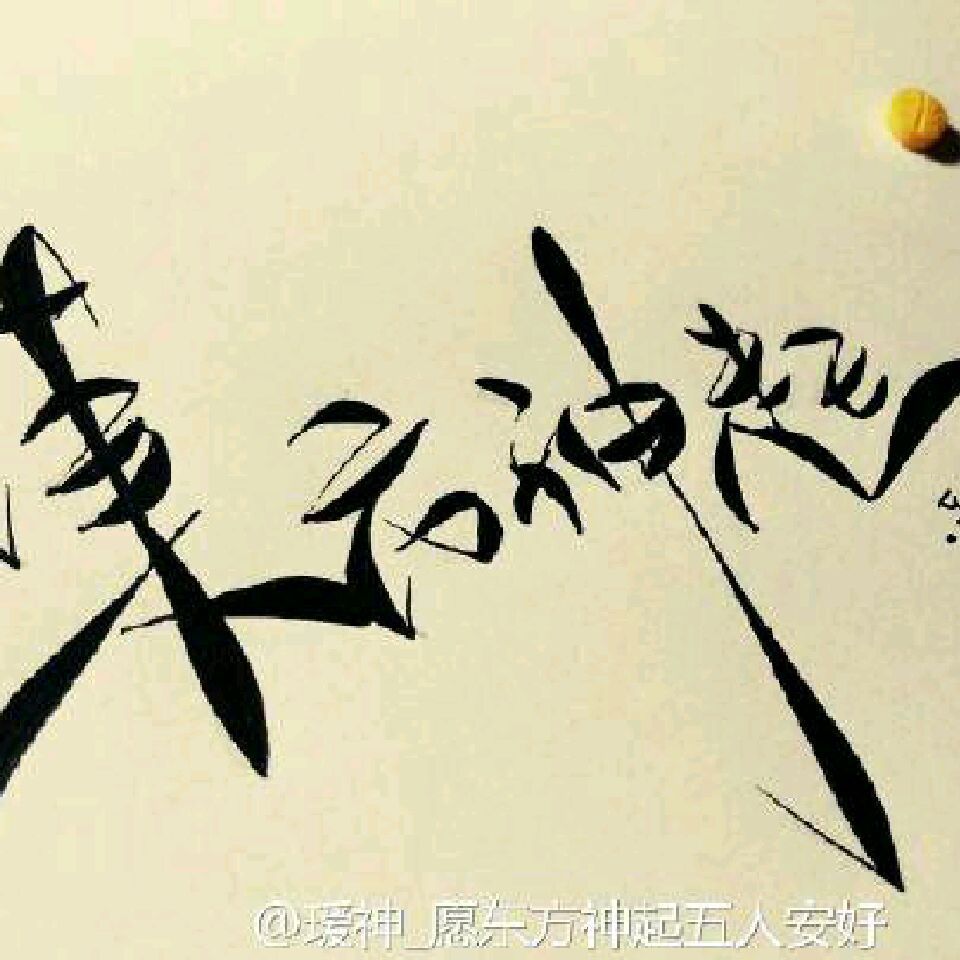 東方神起
@瑷神_愿东方神起五人安好